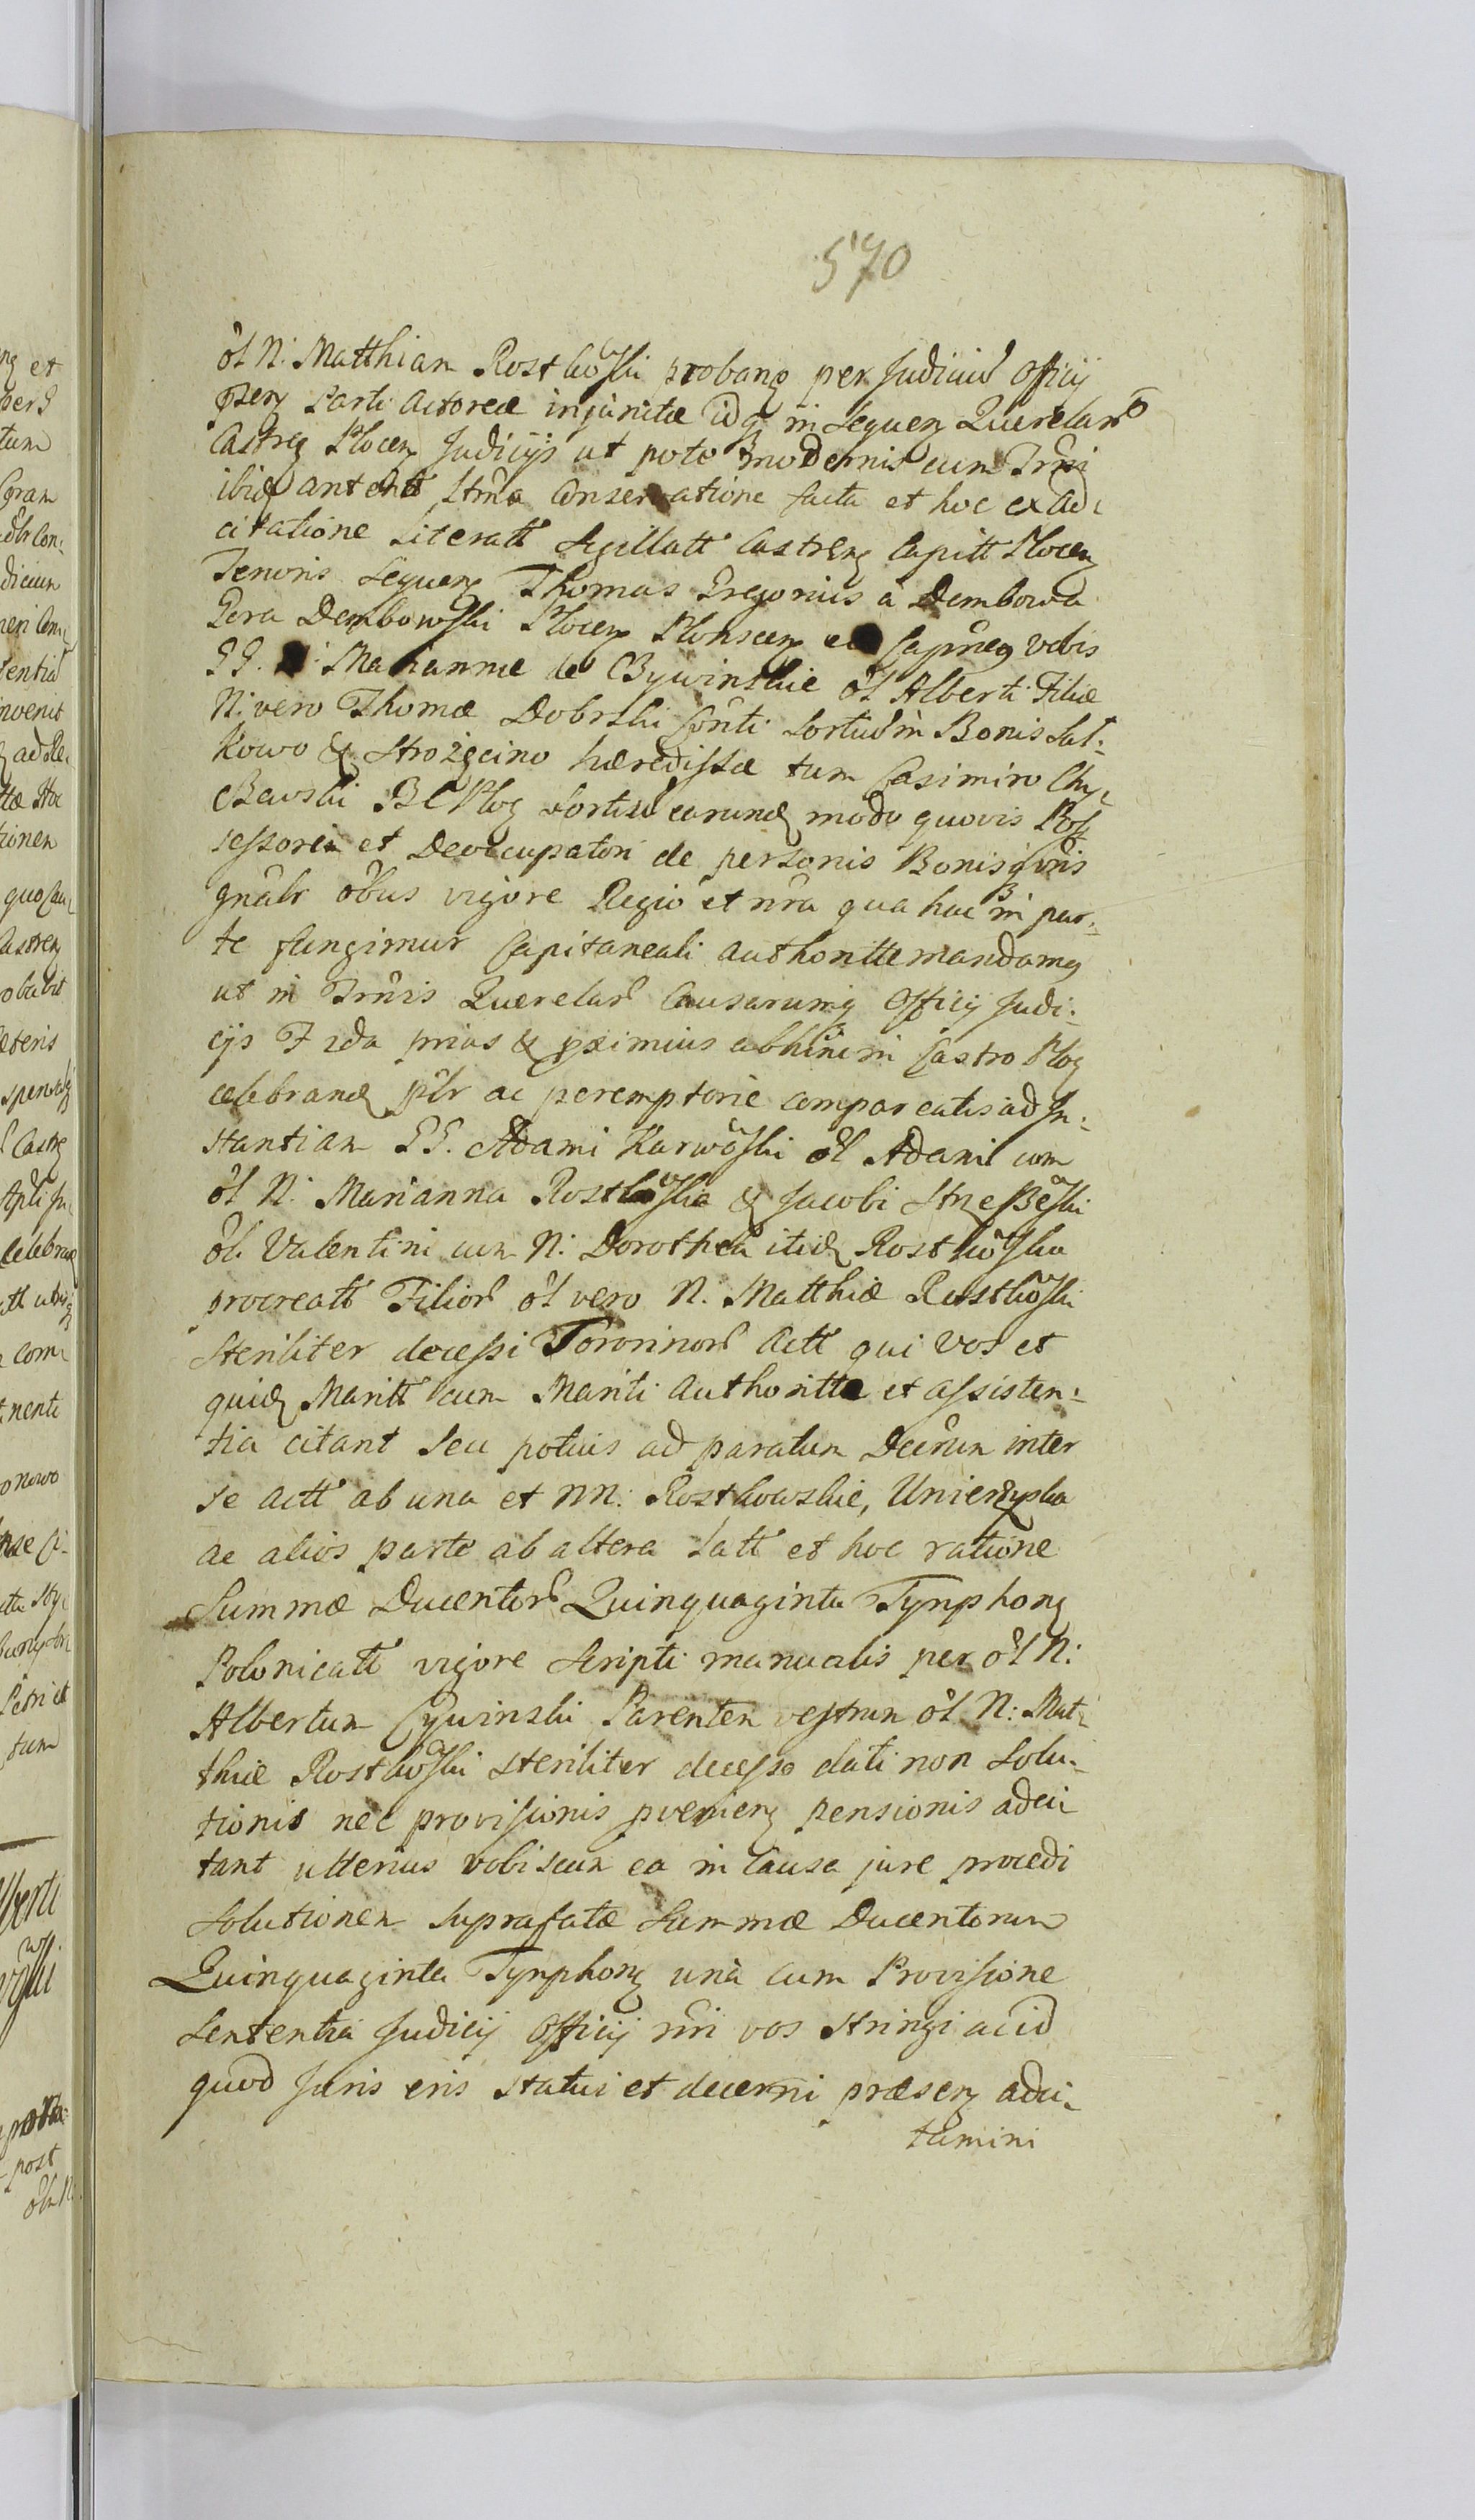 570
ol N: Matthiam Rostkoski probanz per Judiciu Officij
psenz Parti Actoreæ injunctæ idq in sequenz Querelar
Castrenz Plocenz Judicijs ut pote modernis cum Trmi
ibidz Stma Conservatione facta et hoc ex Ad:
citatione Literatt Sigillatt Castrenz Capitt Plocenz
Tenoris Sequenz Thomas Gregorius à Dembowa
Gora Dembowski Plocenz Plonscenz Capneus Vobis
GG. Mariannæ de Cywinskie ol Alberti Filiæ
N: vero Thomæ Dobrski Conti Sortiu in Bonis Sul:
kowo & Strożęcino hæredissæ tum Casimiro Chy:
Bewski B C Plog Sortiu earundz modo quovis Pos
sessori et Deoccupatori de personis Bonisq vris
gnalr obus vigore Regio et nra qua hac in par:
te fungimur Capitaneali authoritte mandamus
ut in Trmis Querelar Causarumq Officij Judi:
cijs F 2da prius & pximius abhinc in Castro Plog
celebrandz plr ac peremptorie compareatis ad In:
stantiam GG. Adami Karwoski ol Adami cum
ol N: Marianna Rostkoska & Jacobi Strzeszeski
ol Valentini cum N: Dorothea itidz Rostkoska
procreatt Filior ol vero N. Matthiæ Rostkoski
steriliter decessi Sororinor Actt qui vos et
quidz Maritt cum Mariti authoritte et assisten:
tia citant seu potius ad paratum Decrum inter
se actt ab una et NN: Rostkowskie, Unierzyska
ac alios parte ab altera latt et hoc ratione
Summæ Ducentor Quinquaginta Tynphonz
Polonicatt vigore Scripti manualis per ol N:
Albertum Cywinski Parentem vestrum ol N: Mat:
thiæ Rostkoski steriliter decesso dati non Solu:
tionis nec provisionis pvenienz pensionis adci
tant ulterius vobiscum ea in Causa jure procedi
Solutionem suprafatæ Summæ Ducentorum
Quinquaginta Tynphonz unà cum Provisione
Sententia Judicij Officij nri vos stringi ac id
quod Juris eris statui et decerni præsenz adci:
tamini